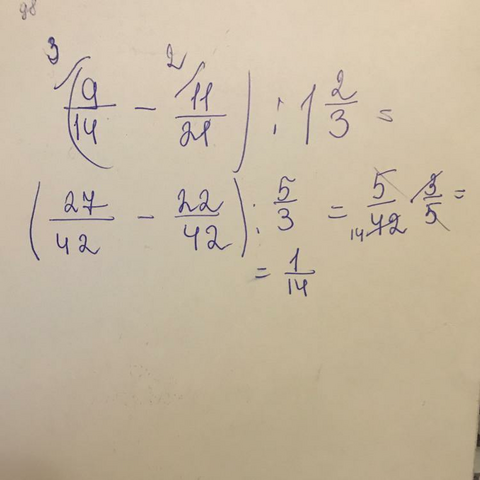 98
(³/9/14 - ²/11/21) : 1 2/3 =
(27/42 - 22/42) : 5/3 = 5/42 14 3/5 =
= 1/14